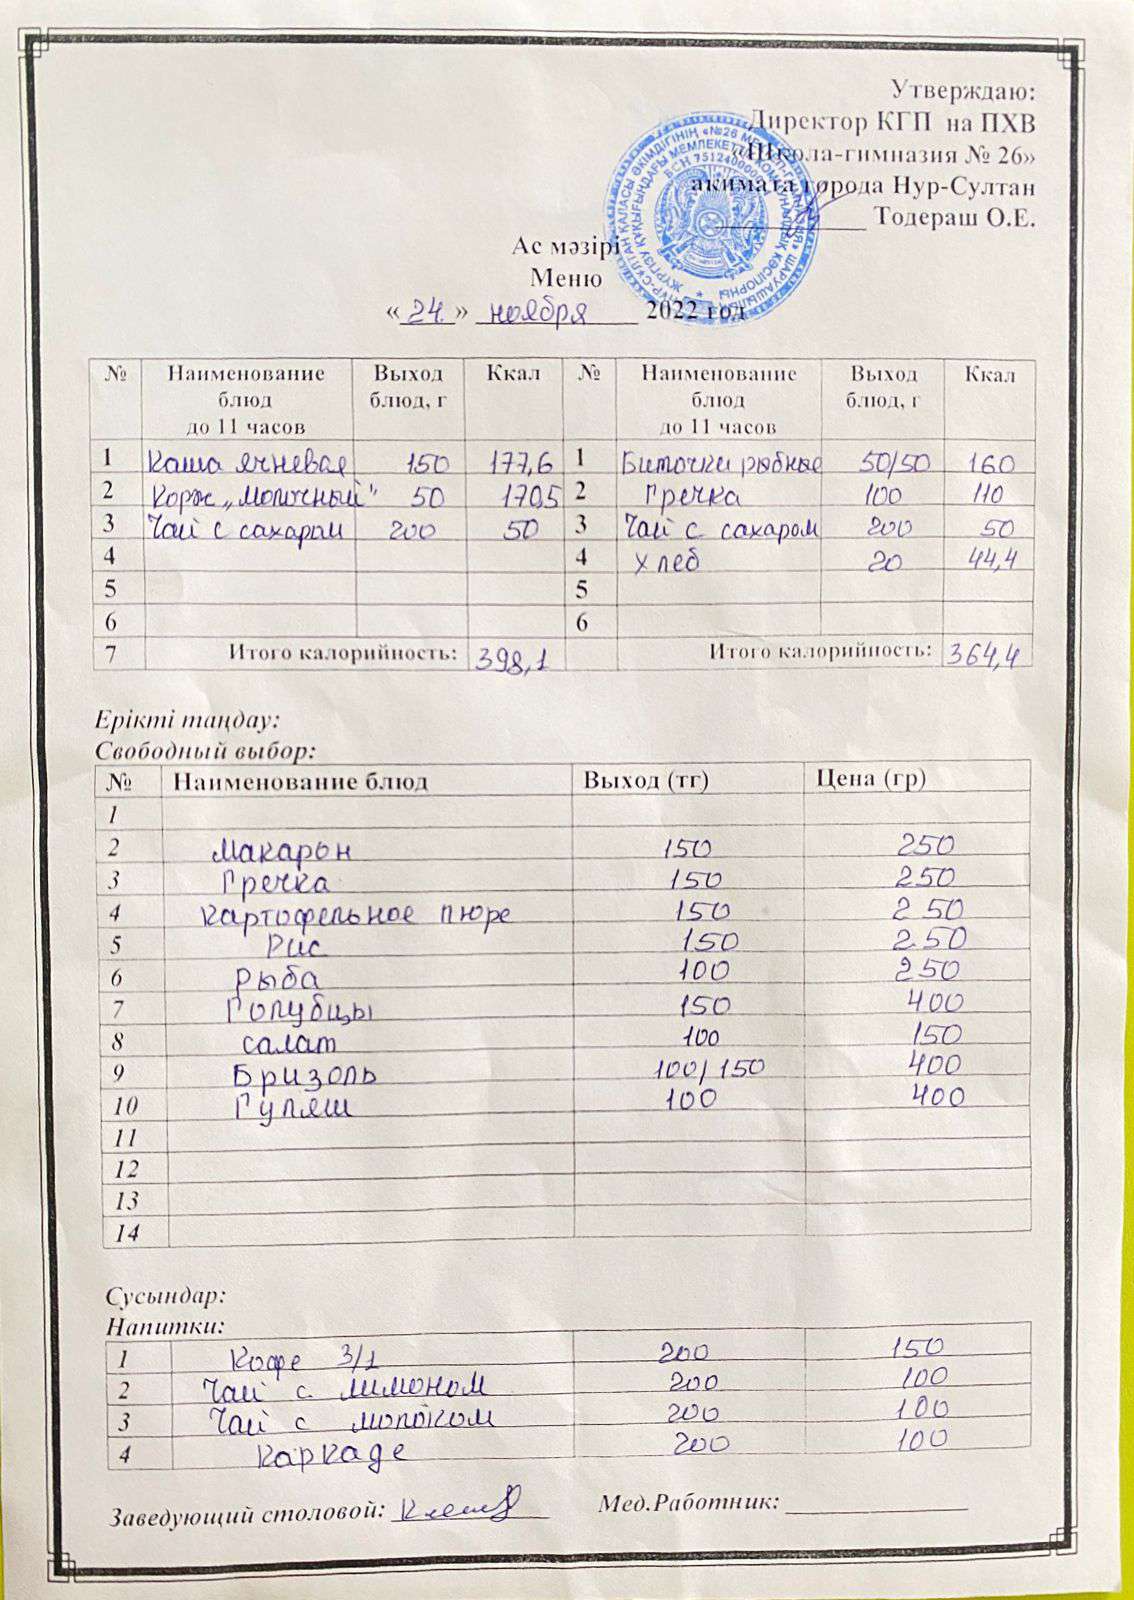 Утверждаю:
Директор КГП на ПХВ
«Школа-гимназия № 26»
акимата города Нур-Султан
Тодераш О.Е.
Ас мәзірі
Меню
«24» ноября 2022 год
№ Наименование блюд до 11 часов Выход блюд, г Ккал № Наименование блюд до 11 часов Выход блюд, г Ккал
1 Каша ячневая 150 177,6 1 Биточки рыбные 50/50 160
2 Корж „молочный" 50 170,5 2 Гречка 100 110
3 Чай с сахаром 200 50 3 Чай с сахаром 200 50
4 4 хлеб 20 44,4
5 5
6 6
7 Итого калорийность: 398,1 Итого калорийность: 364,4
Ерікті таңдау:
Свободный выбор:
№ Наименование блюд Выход (тг) Цена (гр)
1
2 Макарон 150 250
3 Гречка 150 250
4 Картофельное пюре 150 250
5 Рис 150 250
6 Рыба 100 250
7 Голубцы 150 400
8 салат 100 150
9 Бризоль 100/150 400
10 Гуляш 100 400
11
12
13
14
Сусындар:
Напитки:
1 Кофе 3/1 200 150
2 Чай с лимоном 200 100
3 Чай с молоком 200 100
4 Каркаде 200 100
Заведующий столовой: Мед.Работник: